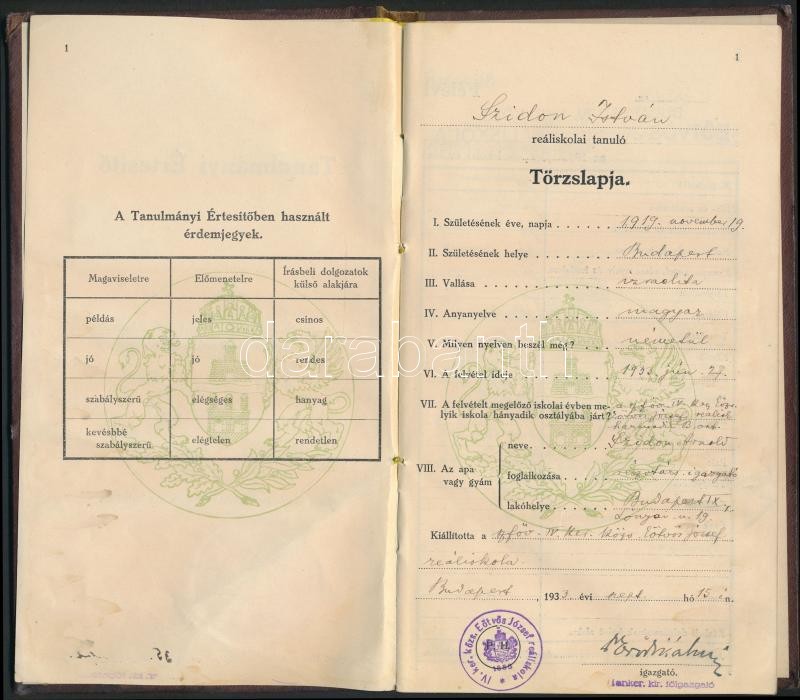 1
A Tanulmányi Értesítőben használt
érdemjegyek.
Magaviseletre Előmenetelre Írásbeli dolgozatok
külső alakjára
példás jeles csinos
jó jó rendes
szabályszerű elégséges hanyag
kevésbbé
szabályszerű elégtelen rendetlen
35.
1
Szidon István
reáliskolai tanuló
Törzslapja.
I. Születésének éve, napja 1919. november 19.
II. Születésének helye Budapest
III. Vallása izraelita
IV. Anyanyelve magyar
V. Milyen nyelven beszél még? németül
VI. A felvétel ideje 1933. jún. 29.
VII. A felvételt megelőző iskolai évben me-
lyik iskola hányadik osztályába járt? József reálisk.
VIII. Az apa
vagy gyám
neve Szidon Arnold
foglalkozása igazgató
lakóhelye Budapest IX.,
Lónyai u. 19.
Kiállította a főv. IV. ker. közs. Eötvös József
reáliskola
Budapest, 1933 évi szept. hó 15-én.
IV. ker. közs. Eötvös József reáliskola
P. H.
igazgató.
tanker. kir. főigazgató
darabanth